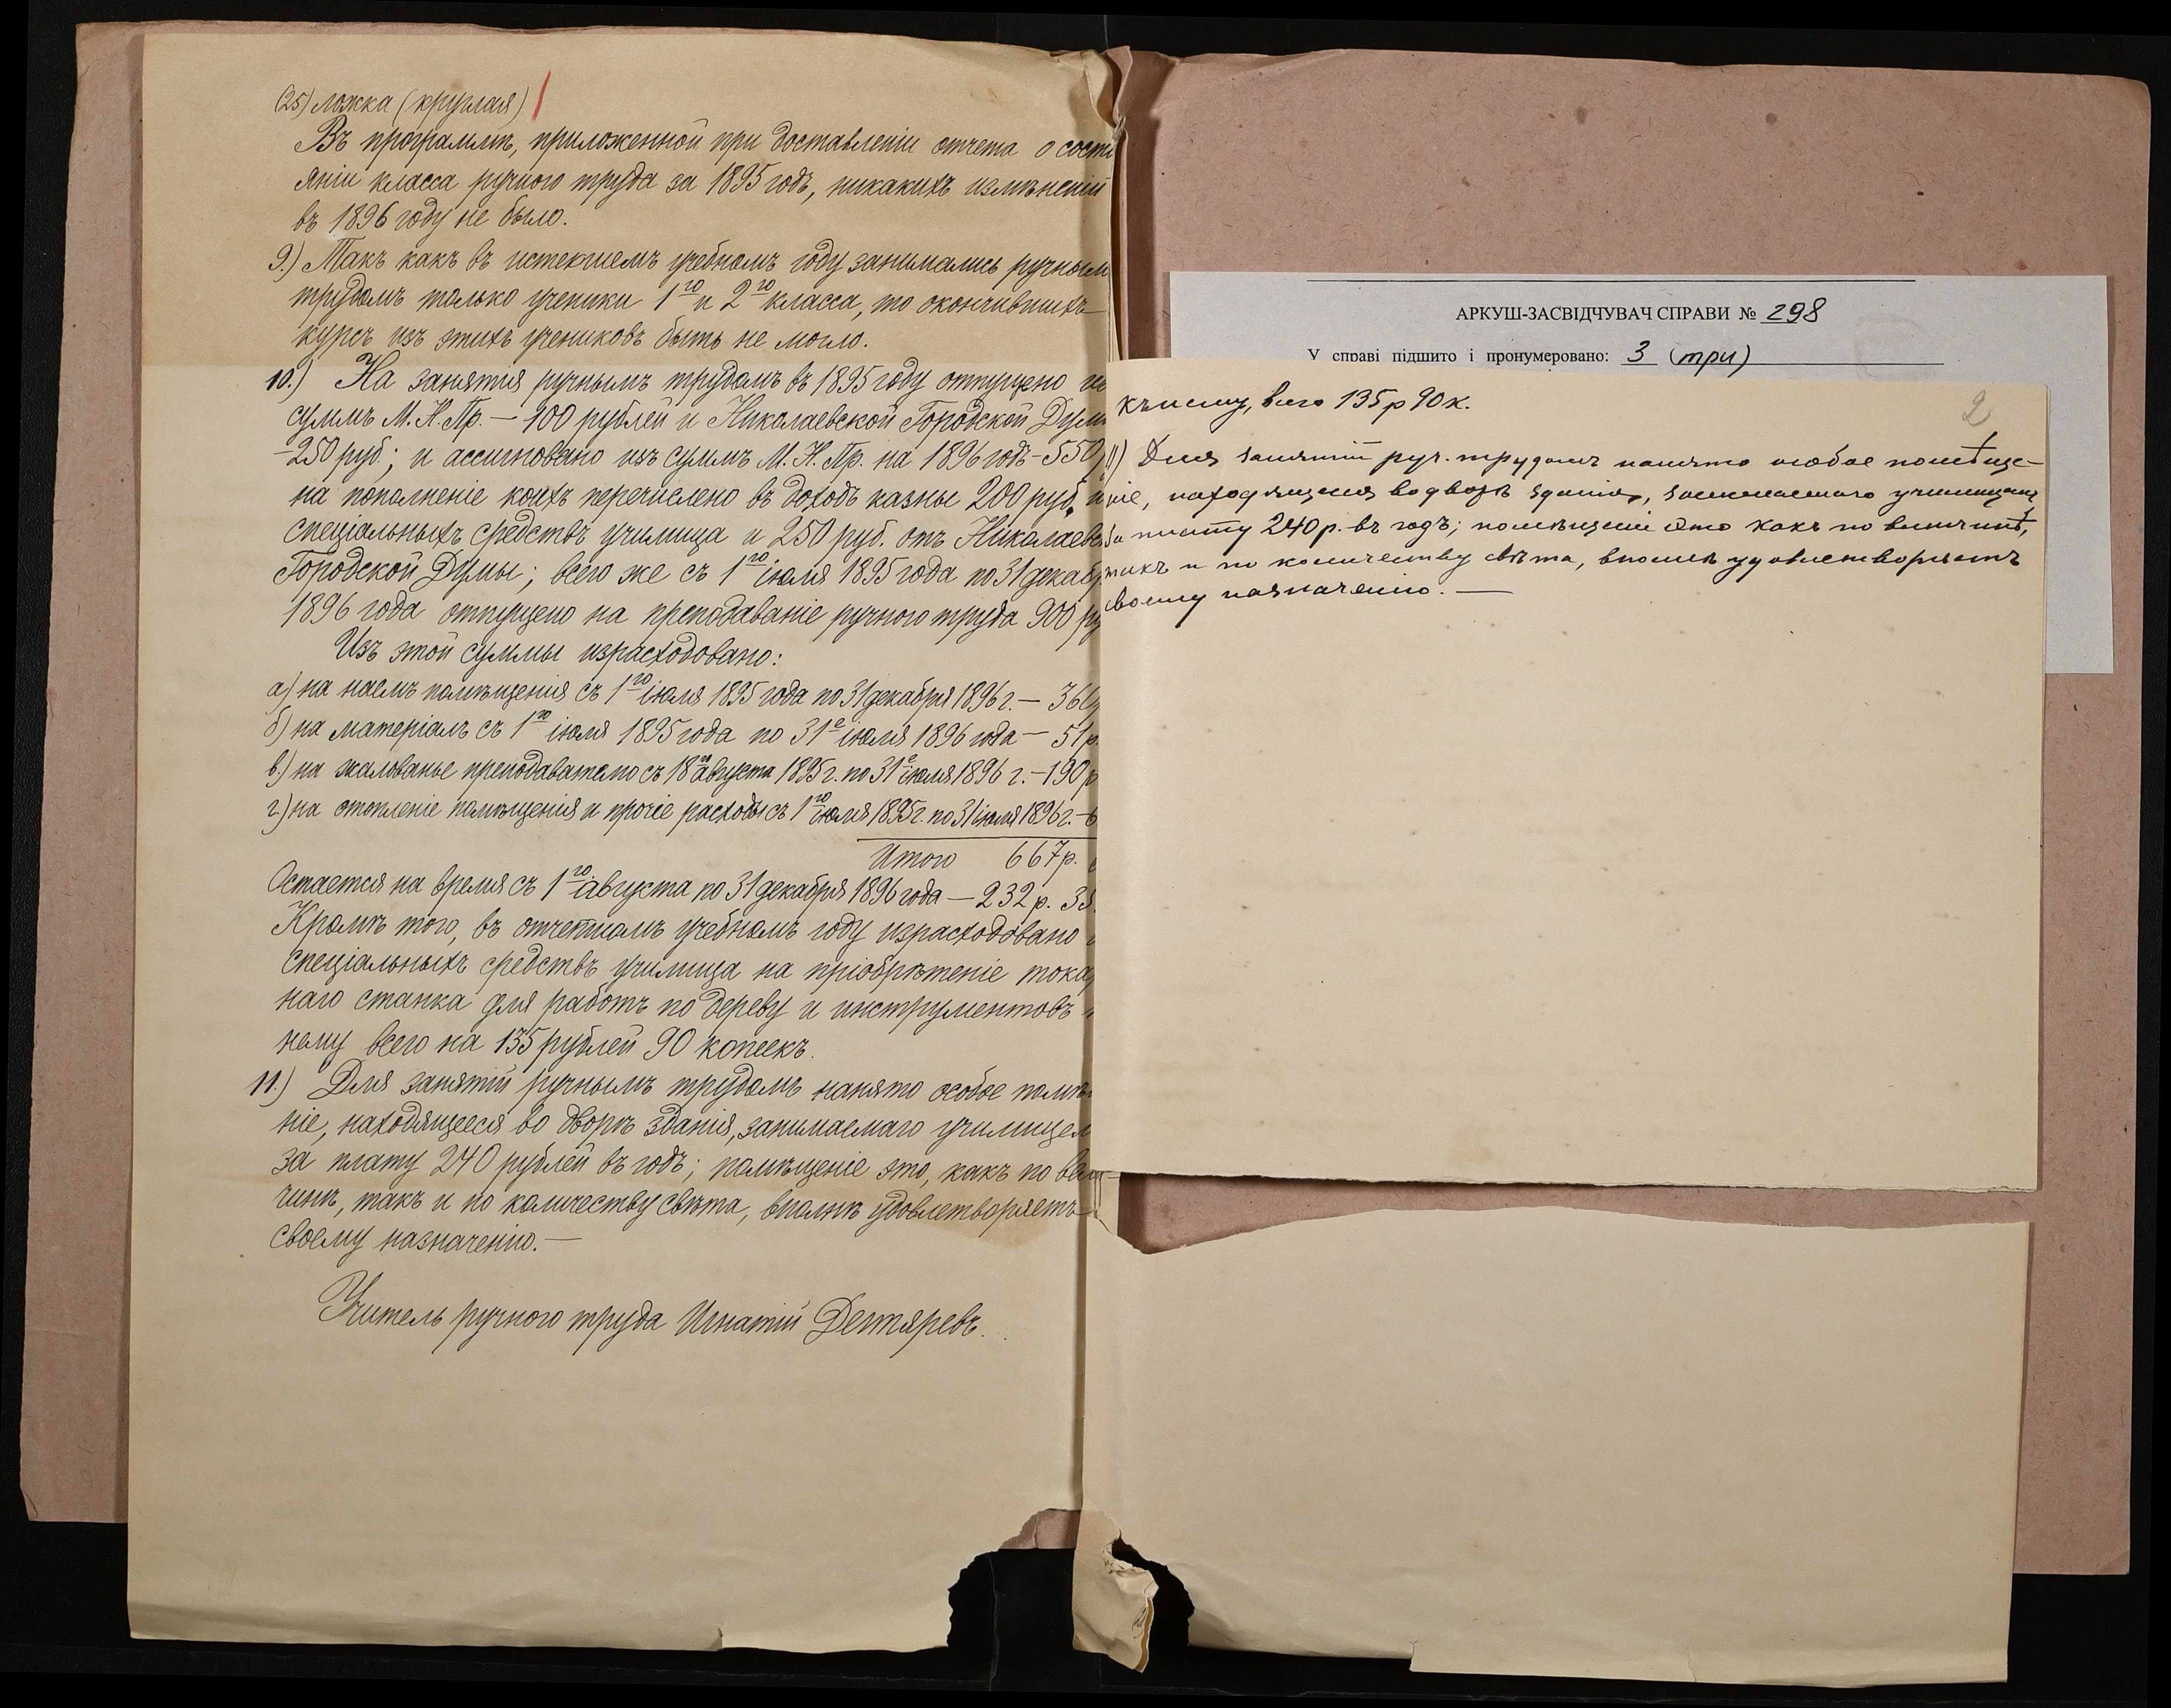 (25) ложка (круглая)
Въ программѣ, приложенной при доставленіи отчета о состо
яніи класса ручного труда за 1895 годъ, никакихъ измѣненій
въ 1896 году не было.
9.) Такъ какъ въ истекшемъ учебномъ году занимались ручным
трудомъ только ученики 1го и 2го класса, то окончившихъ
курсъ изъ этихъ учениковъ быть не могло.
10.) На занятія ручнымъ трудомъ въ 1895 году отпущено из
суммъ М. Н. Пр. — 100 рублей и Николаевской Городской Дум
- 250 руб.; и ассигновано изъ суммъ М. Н. Пр. на 1896 годъ - 550
на пополненіе коихъ перечислено въ доходъ казны 200 руб. и
спеціальныхъ средствъ училища и 250 руб. отъ Николаев
Городской Думы; всего же съ 1го іюля 1895 года по 31 декаб
1896 года отпущено на преподаваніе ручного труда 900 ру
Изъ этой суммы израсходовано:
а) на наемъ помѣщенія съ 1го іюля 1895 года по 31 декабря 1896 г. — 360
б) на матеріалъ съ 1го іюля 1895 года по 31е іюля 1896 года — 51 р.
в.) на жалованье преподавателю съ 18го августа 1895 г. по 31е іюля 1896 г. - 190 р
г.) на отопленіе помѣщенія и прочіе расходы съ 1го іюля 1895 г. по 31 іюля 1896 г. -
Итого 667 р.
Остается на время съ 1го августа по 31 декабря 1896 года — 232 р. 38
Кромѣ того, въ отчетномъ учебномъ году израсходовано
спеціальныхъ средствъ училища на пріобрѣтеніе тока
наго станка для работъ по дереву и инструментовъ
нему всего на 135 рублей 90 копеекъ.
11.) Для занятій ручнымъ трудомъ нанято особое помѣ
ніе, находящееся во дворѣ зданія, занимаемаго училищем
за плату 240 рублей въ годъ; помѣщеніе это, какъ по вели-
чинѣ, такъ и по количеству свѣта, вполнѣ удовлетворяетъ
своему назначенію. —
Учитель ручного труда Игнатій Дегтяревъ.
АРКУШ-ЗАСВІДЧУВАЧ СПРАВИ № 298
У справі підшито і пронумеровано: 3 (три)
2
къ нему, всего 135 р 90 к.
11) Для занятій руч. трудомъ нанято особое помѣще-
ніе, находящееся во дворѣ зданія, занимаемаго училищемъ
за плату 240 р. въ годъ; помѣщеніе это какъ по величинѣ,
такъ и по количеству свѣта, вполнѣ удовлетворяетъ
своему назначенію. —